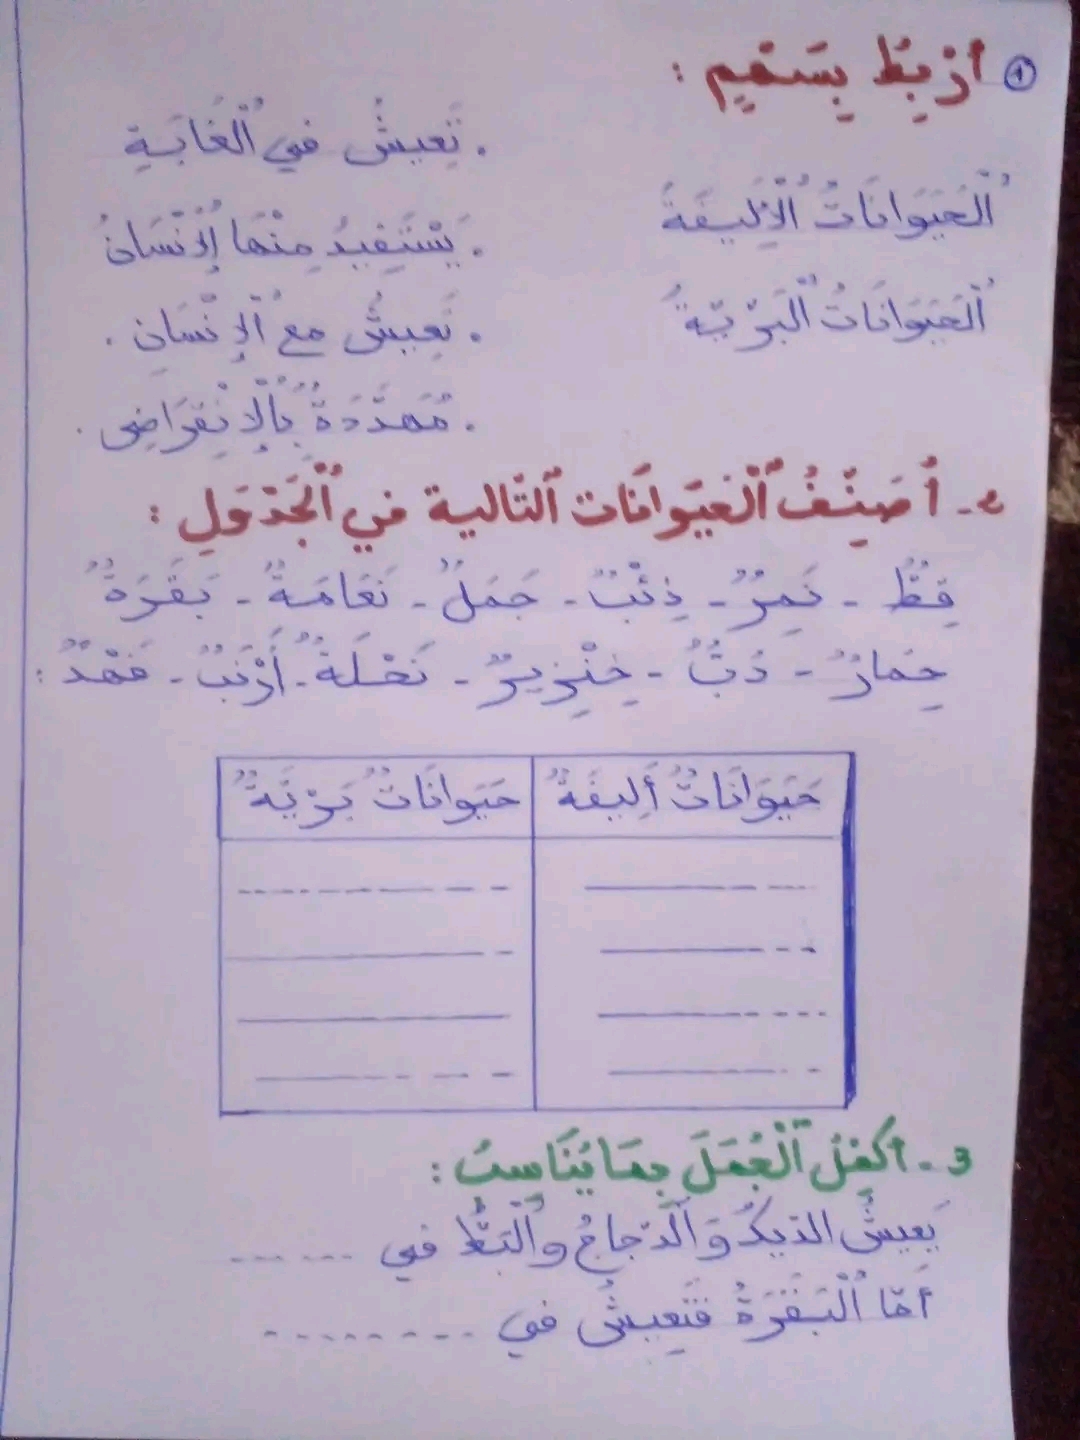 ① أرْبِطُ بِسَهْمٍ :
. تَعِيشُ فِي ٱلْغَابَةِ
ٱلْحَيَوَانَاتُ ٱلْأَلِيفَةُ
. يَسْتَفِيدُ مِنْهَا ٱلْإِنْسَانُ
ٱلْحَيَوَانَاتُ ٱلْبَرِّيَّةُ
. تَعِيشُ مع ٱلْإِنْسَانِ .
. مُهَدَّدَةٌ بِٱلْإِنْقِرَاضِ .
2- أُصَنِّفُ ٱلْحَيَوَانَات ٱلتَّالية في ٱلْجَدْوَلِ :
قِطٌّ - نَمِرٌ - ذِئْبٌ - جَمَلٌ - نَعَامَةٌ - بَقَرَةٌ
حِمَارٌ - دُبٌّ - خِنْزِيرٌ - نَحْلَةٌ - أَرْنَبٌ - فَهْدٌ :
حَيَوَانَاتٌ أَلِيفَةٌ حَيَوانَاتٌ بَرِّيَّةٌ
3 - أكْمِلُ ٱلْجُمَلَ بِمَا يُنَاسِبُ :
يَعِيشُ الدّيكُ وَٱلدّجاجُ وٱلْبَطُّ في ......
أمّا ٱلْبَقَرَةُ فَتَعِيشُ في ........